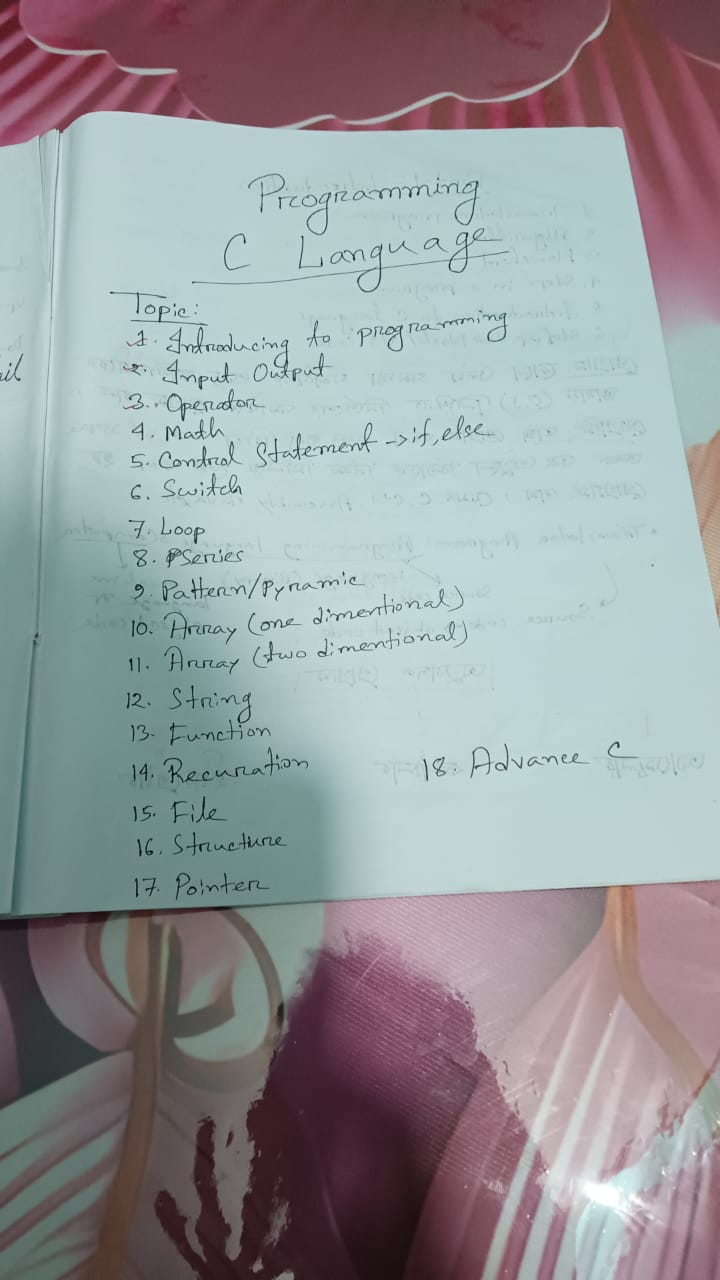 Programming
C Language
Topic:
1. Introducing to programming
2. Input Output
3. Operator
4. Math
5. Control Statement -> if, else
6. Switch
7. Loop
8. Series
9. Pattern/Pyramic
10. Array (one dimentional)
11. Array (two dimentional)
12. String
13. Function
14. Recursation
15. File
16. Structure
17. Pointer
18. Advance C